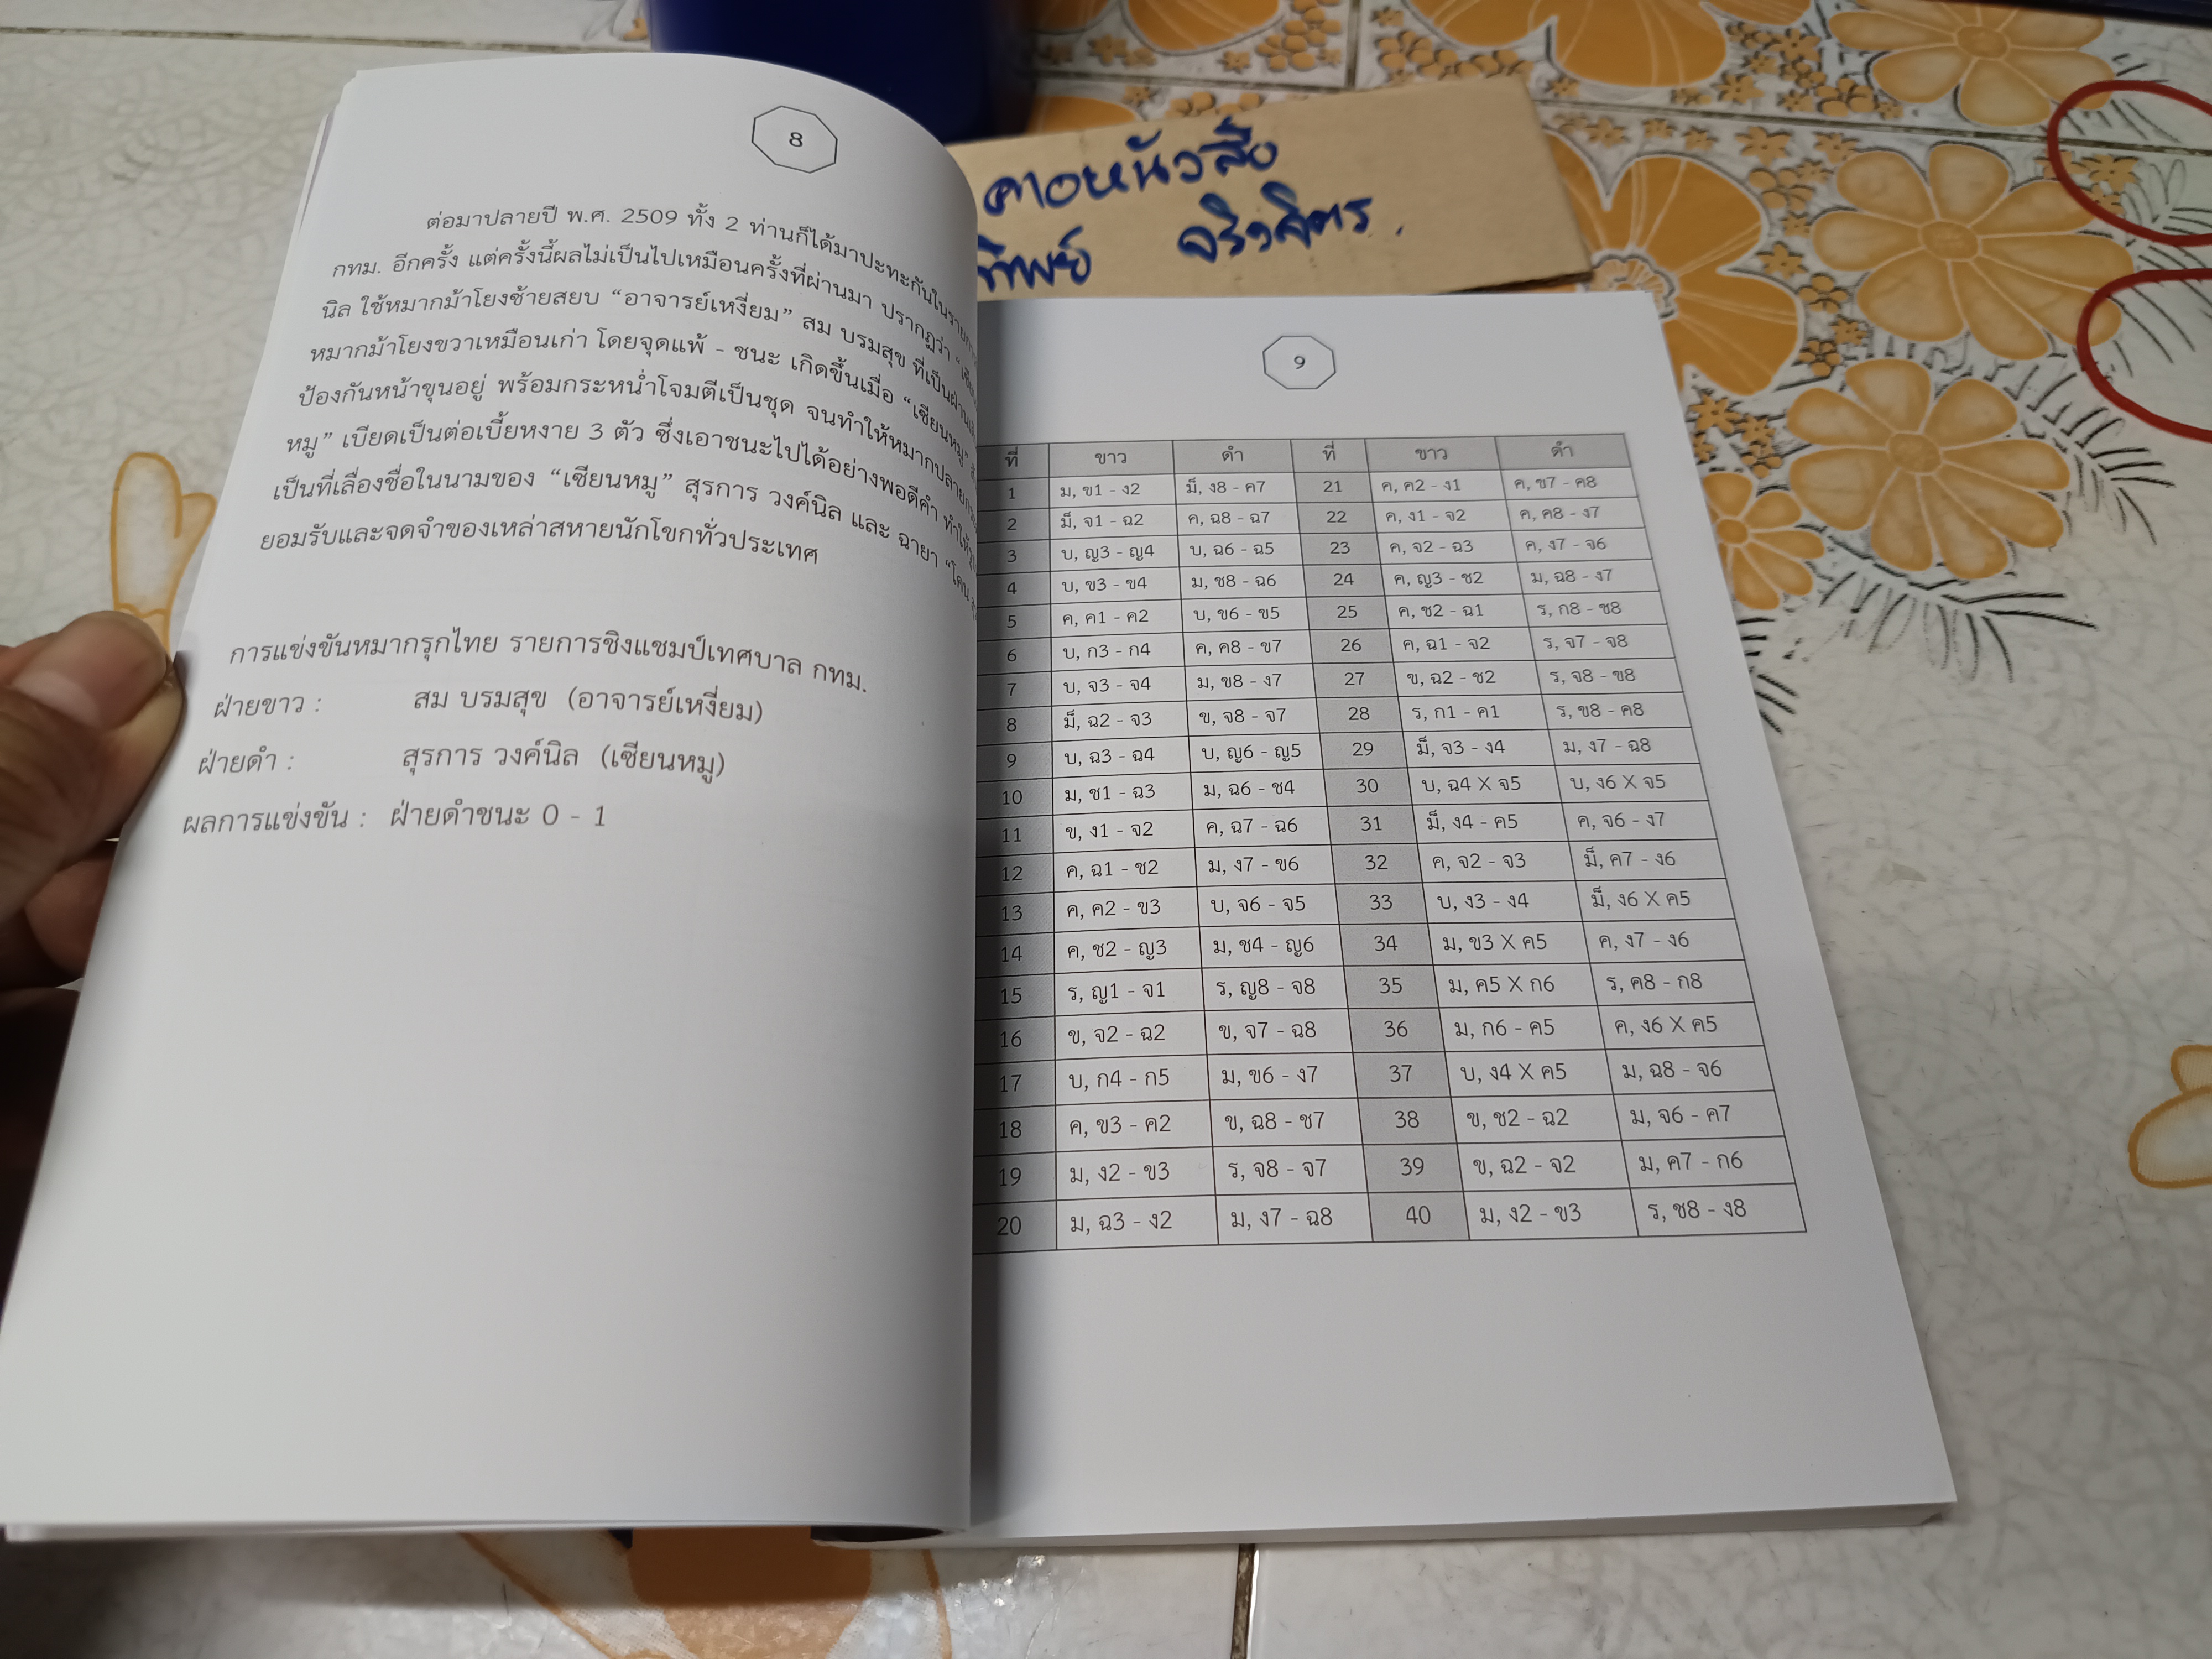 8
ต่อมาปลายปี พ.ศ. 2509 ทั้ง 2 ท่านก็ได้มาปะทะกันในรายการ
กทม. อีกครั้ง แต่ครั้งนี้ผลไม่เป็นไปเหมือนครั้งที่ผ่านมา ปรากฏว่า
นิล ใช้หมากม้าโยงซ้ายสยบ “อาจารย์เหงี่ยม” สม บรมสุข ที่เป็นฝ่าย
หมากม้าโยงขวาเหมือนเก่า โดยจุดแพ้ - ชนะ เกิดขึ้นเมื่อ “เซียนหมู”
ป้องกันหน้าขุนอยู่ พร้อมกระหน่ำโจมตีเป็นชุด จนทำให้หมากปลาย
หมู” เบียดเป็นต่อเบี้ยหงาย 3 ตัว ซึ่งเอาชนะไปได้อย่างพอดีคำ ทำให้
เป็นที่เลื่องชื่อในนามของ “เซียนหมู” สุรการ วงค์นิล และ ฉายา “โคน
ยอมรับและจดจำของเหล่าสหายนักโขกทั่วประเทศ
การแข่งขันหมากรุกไทย รายการชิงแชมป์เทศบาล กทม.
ฝ่ายขาว : สม บรมสุข (อาจารย์เหงี่ยม)
ฝ่ายดำ : สุรการ วงค์นิล (เซียนหมู)
ผลการแข่งขัน : ฝ่ายดำชนะ 0 - 1
คาอหนัวสือ
ทิพย์ จริงจิตร.
9
ที่ ขาว ดำ ที่ ขาว ดำ
1 ม, ข1 - ง2 ม็, ง8 - ค7 21 ค, ค2 - ง1 ค, ข7 - ค8
2 ม็, จ1 - ฉ2 ค, ฉ8 - ฉ7 22 ค, ง1 - จ2 ค, ค8 - ง7
3 บ, ญ3 - ญ4 บ, ฉ6 - ฉ5 23 ค, จ2 - ฉ3 ค, ง7 - จ6
4 บ, ข3 - ข4 ม, ช8 - ฉ6 24 ค, ญ3 - ช2 ม, ฉ8 - ง7
5 ค, ค1 - ค2 บ, ข6 - ข5 25 ค, ช2 - ฉ1 ร, ก8 - ช8
6 บ, ก3 - ก4 ค, ค8 - ข7 26 ค, ฉ1 - จ2 ร, จ7 - จ8
7 บ, จ3 - จ4 ม, ข8 - ง7 27 ข, ฉ2 - ช2 ร, จ8 - ข8
8 ม็, ฉ2 - จ3 ข, จ8 - จ7 28 ร, ก1 - ค1 ร, ข8 - ค8
9 บ, ฉ3 - ฉ4 บ, ญ6 - ญ5 29 ม็, จ3 - ง4 ม, ง7 - ฉ8
10 ม, ช1 - ฉ3 ม, ฉ6 - ช4 30 บ, ฉ4 X จ5 บ, ง6 X จ5
11 ข, ง1 - จ2 ค, ฉ7 - ฉ6 31 ม็, ง4 - ค5 ค, จ6 - ง7
12 ค, ฉ1 - ช2 ม, ง7 - ข6 32 ค, จ2 - จ3 ม็, ค7 - ง6
13 ค, ค2 - ข3 บ, จ6 - จ5 33 บ, ง3 - ง4 ม็, ง6 X ค5
14 ค, ช2 - ญ3 ม, ช4 - ญ6 34 ม, ข3 X ค5 ค, ง7 - ง6
15 ร, ญ1 - จ1 ร, ญ8 - จ8 35 ม, ค5 X ก6 ร, ค8 - ก8
16 ข, จ2 - ฉ2 ข, จ7 - ฉ8 36 ม, ก6 - ค5 ค, ง6 X ค5
17 บ, ก4 - ก5 ม, ข6 - ง7 37 บ, ง4 X ค5 ม, ฉ8 - จ6
18 ค, ข3 - ค2 ข, ฉ8 - ช7 38 ข, ช2 - ฉ2 ม, จ6 - ค7
19 ม, ง2 - ข3 ร, จ8 - จ7 39 ข, ฉ2 - จ2 ม, ค7 - ก6
20 ม, ฉ3 - ง2 ม, ง7 - ฉ8 40 ม, ง2 - ข3 ร, ช8 - ง8